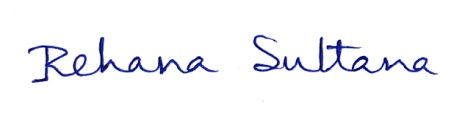 Rehana Sultana